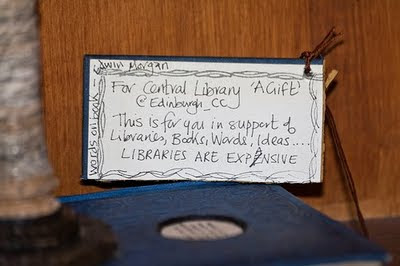 words on book - Edwin Morgan
For Central Library 'A Gift'
@Edinburgh_CC
This Is for you in support of
Libraries, Books, Words, Ideas....
LIBRARIES ARE EXPANSIVE